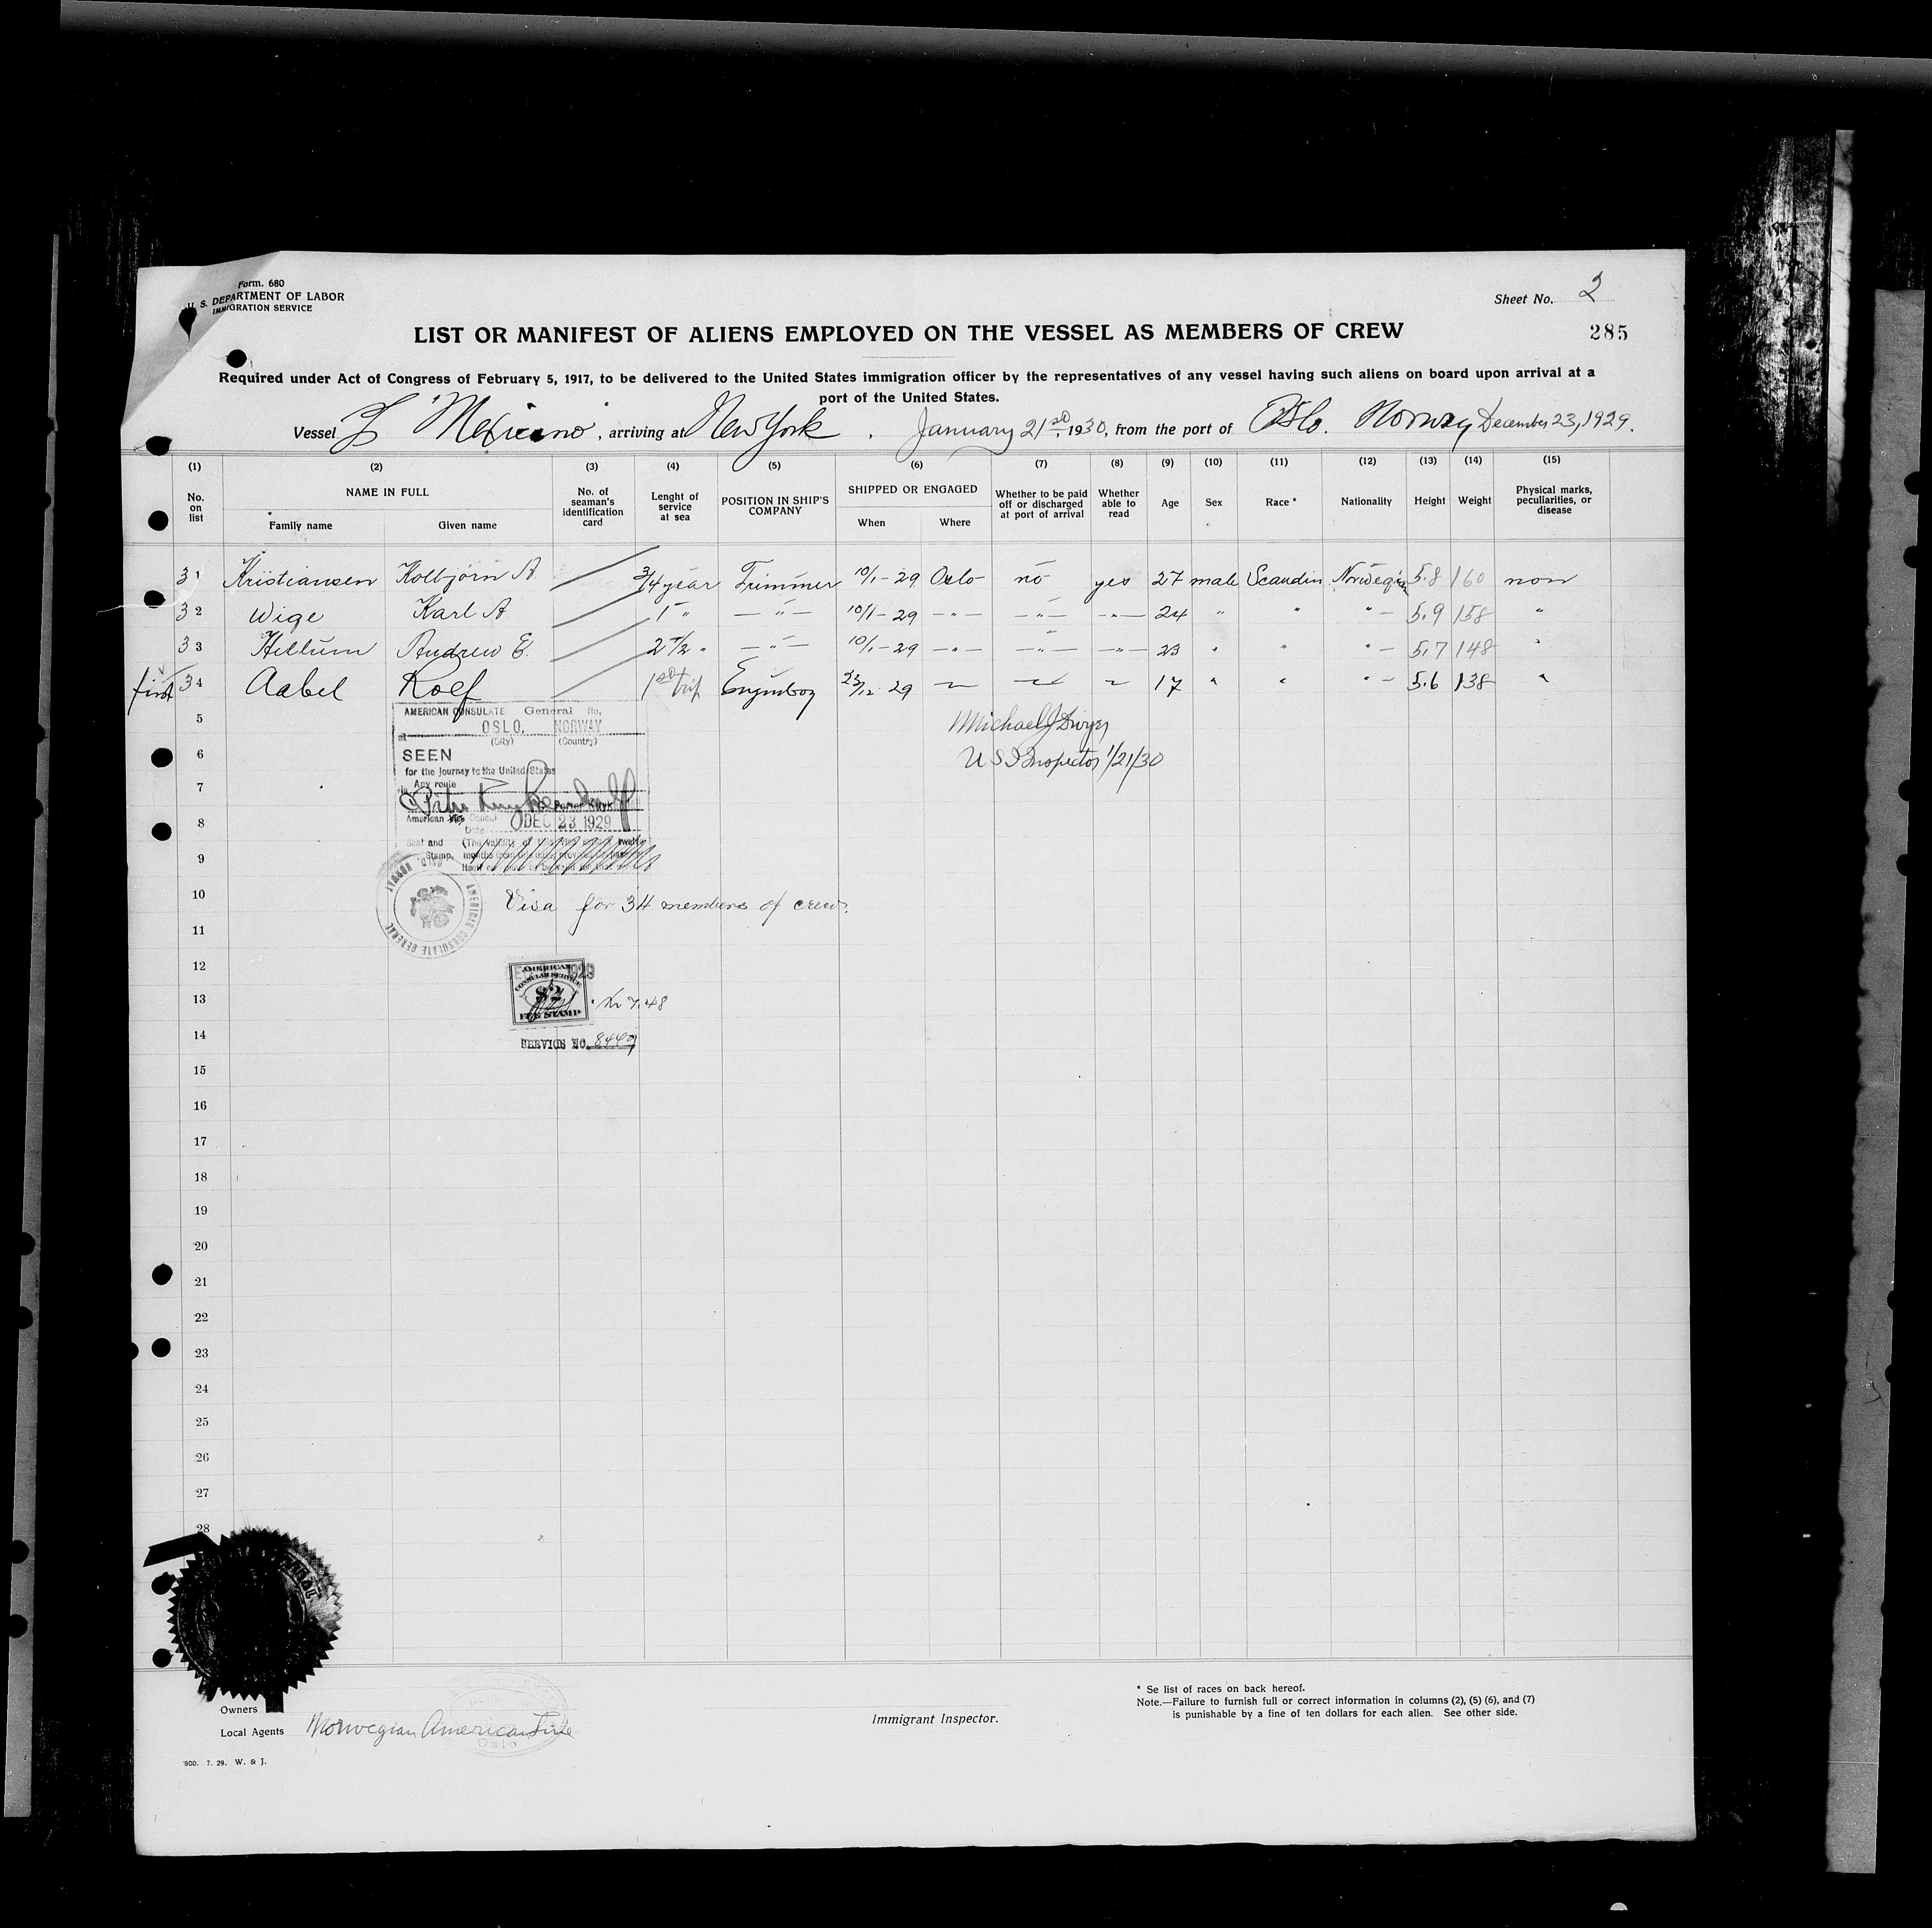 Form. 680
U. S. DEPARTMENT OF LABOR
IMMIGRATION SERVICE
Sheet No. 2
LIST OR MANIFEST OF ALIENS EMPLOYED ON THE VESSEL AS MEMBERS OF CREW
285
Required under Act of Congress of February 5, 1917, to be delivered to the United States immigration officer by the representatives of any vessel having such aliens on board upon arrival at a
port of the United States.
Vessel Mexicano, arriving at New York, January 21st, 1930, from the port of Oslo. Norway December 23, 1929.
(1) (2) (3) (4) (5) (6) (7) (8) (9) (10) (11) (12) (13) (14) (15)
No. on list
NAME IN FULL
Family name Given name
No. of seaman's identification card
Lenght of service at sea
POSITION IN SHIP'S COMPANY
SHIPPED OR ENGAGED
When Where
Whether to be paid off or discharged at port of arrival
Whether able to read
Age
Sex
Race *
Nationality
Height
Weight
Physical marks, peculiarities, or disease
31 Kristiansen Kolbjörn A. 3/4 year Trimmer 10/1-29 Oslo no yes 27 male Scandin Norwegian 5.8 160 non
32 Wige Karl A 1 " — " — 10/1-29 — " — — " — — " — 24 " " " — 5.9 158 "
33 Hellum Andrew E. 2 1/2 " — " — 10/1-29 — " — — " — — " — 23 " " " — 5.7 148 "
first 34 Aabel Rolf 1st trip Enginboy 23/12 29 17 " " " — 5.6 138 "
5
Michael J Dwyer
6
U S Inspector 1/21/30
7
8
9
10
11
12
13
14
15
16
17
18
19
20
21
22
23
24
25
26
27
28
AMERICAN CONSULATE General No.
at OSLO, NORWAY
(City) (Country)
SEEN
for the journey to the United States
Any route
American Consul
Date DEC 23 1929
Seal and Stamp.
AMERICAN CONSULATE GENERAL
Visa for 34 members of crew.
1929
AMERICAN
CONSULAR SERVICE
$2
FEE STAMP
Kr 7.48
SERVICE NO. 8449
Owners
Local Agents Norwegian American Line
Oslo
Immigrant Inspector.
* Se list of races on back hereof.
Note.—Failure to furnish full or correct information in columns (2), (5) (6), and (7)
is punishable by a fine of ten dollars for each alien. See other side.
500. 7. 29. W. & J.